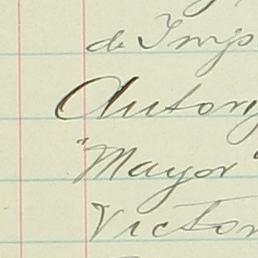 de Imp
Antony
"Mayor"
Victor